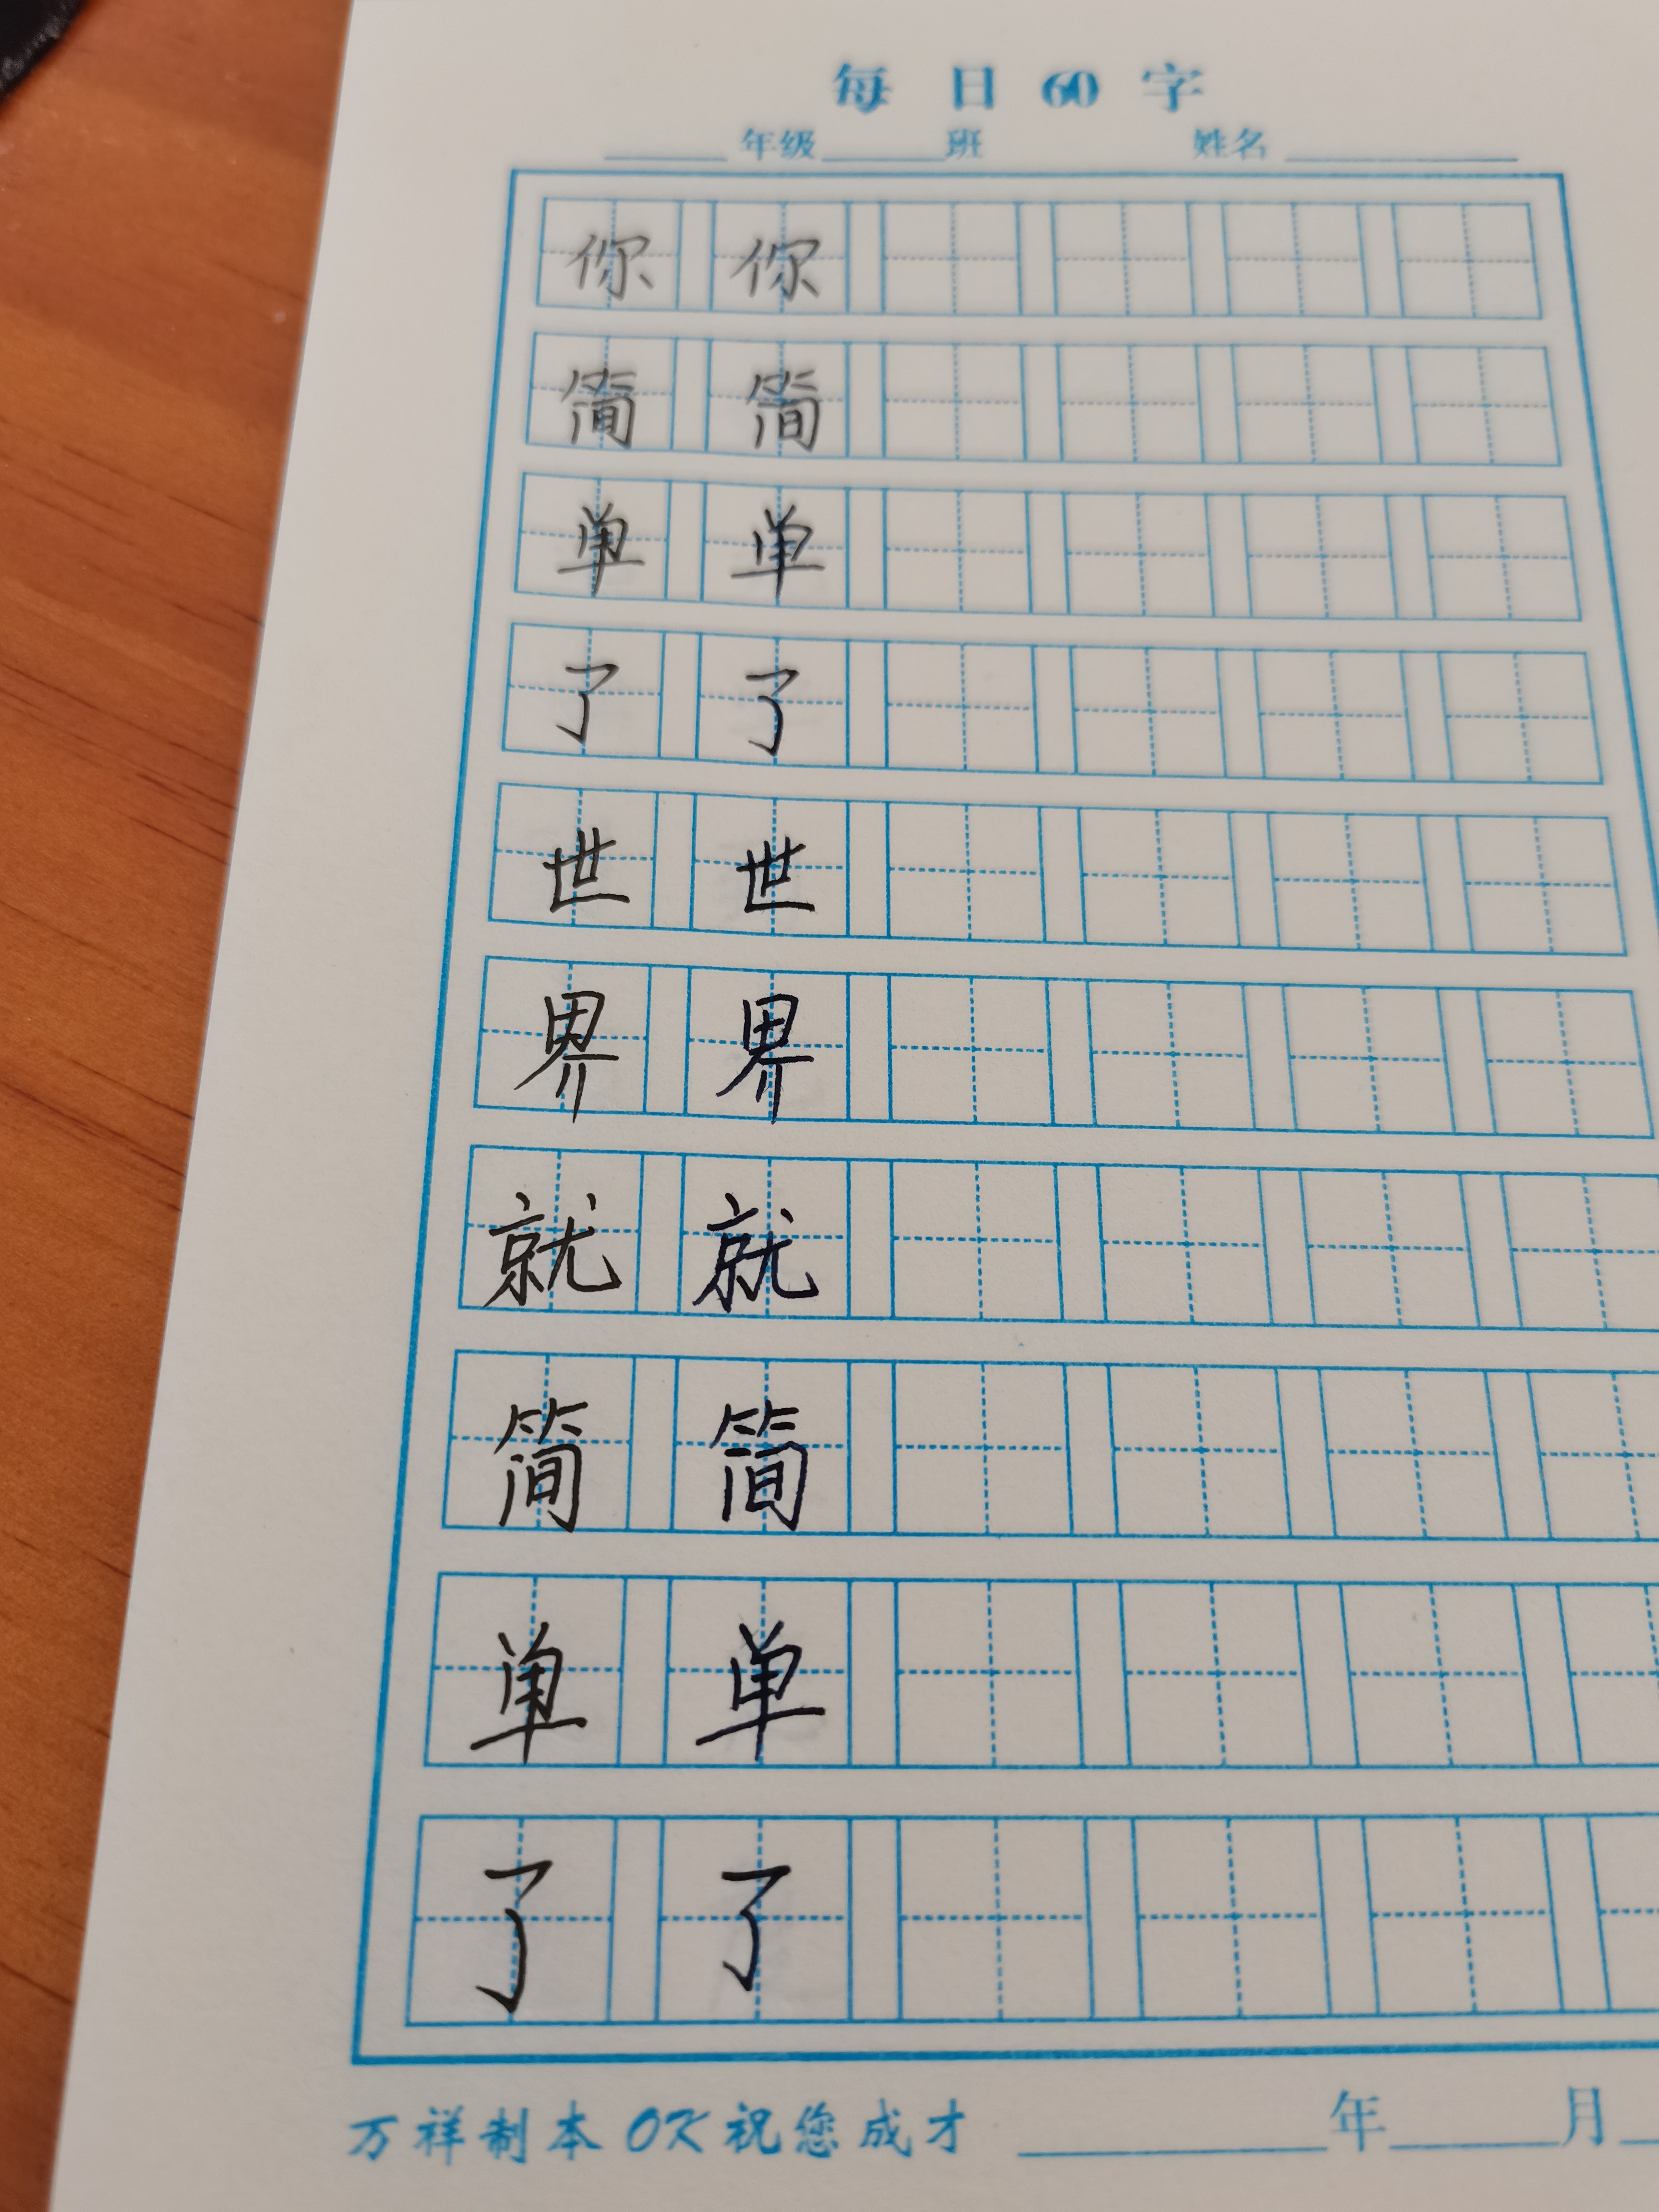 每日60字
年级 班 姓名
你 你
简 简
单 单
了 了
世 世
界 界
就 就
简 简
单 单
了 了
万祥制本 OK 祝您成才 年 月